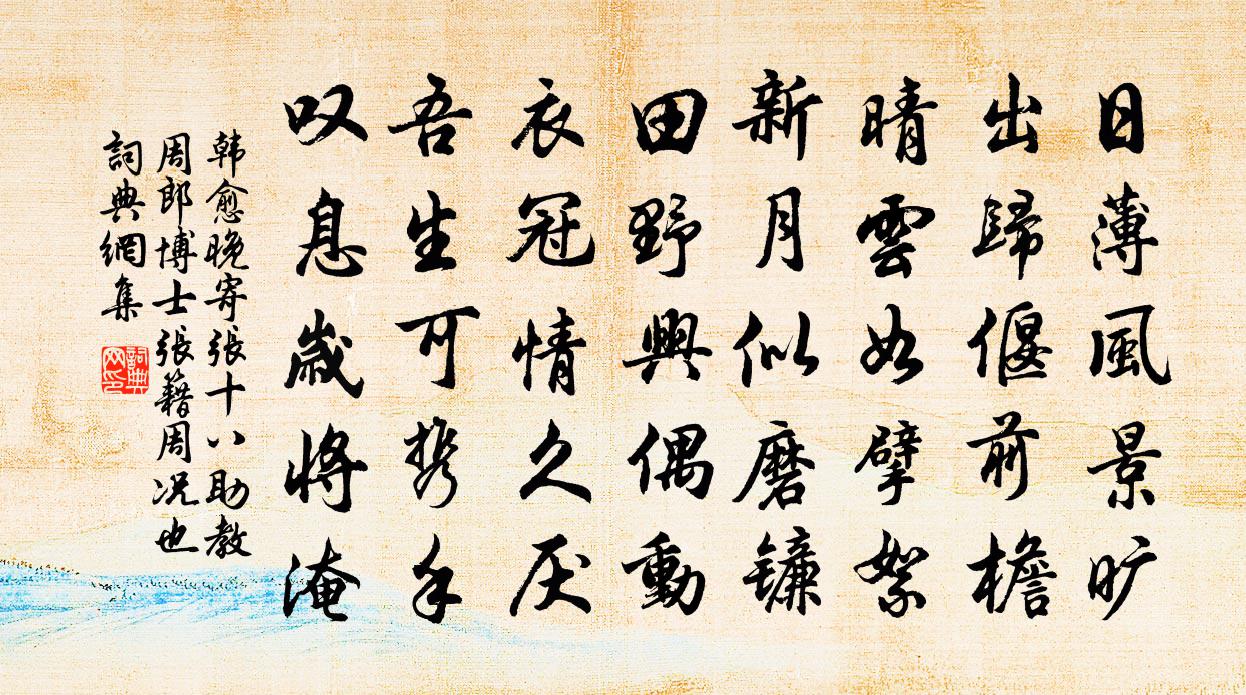 日薄風景旷
出歸偃前檐
晴雲如擘絮
新月似磨镰
田野興偶動
衣冠情久厌
吾生可携手
叹息歲將淹
韩愈晚寄張十八助教
周郎博士張籍周况也
詞典網集
詞典网印